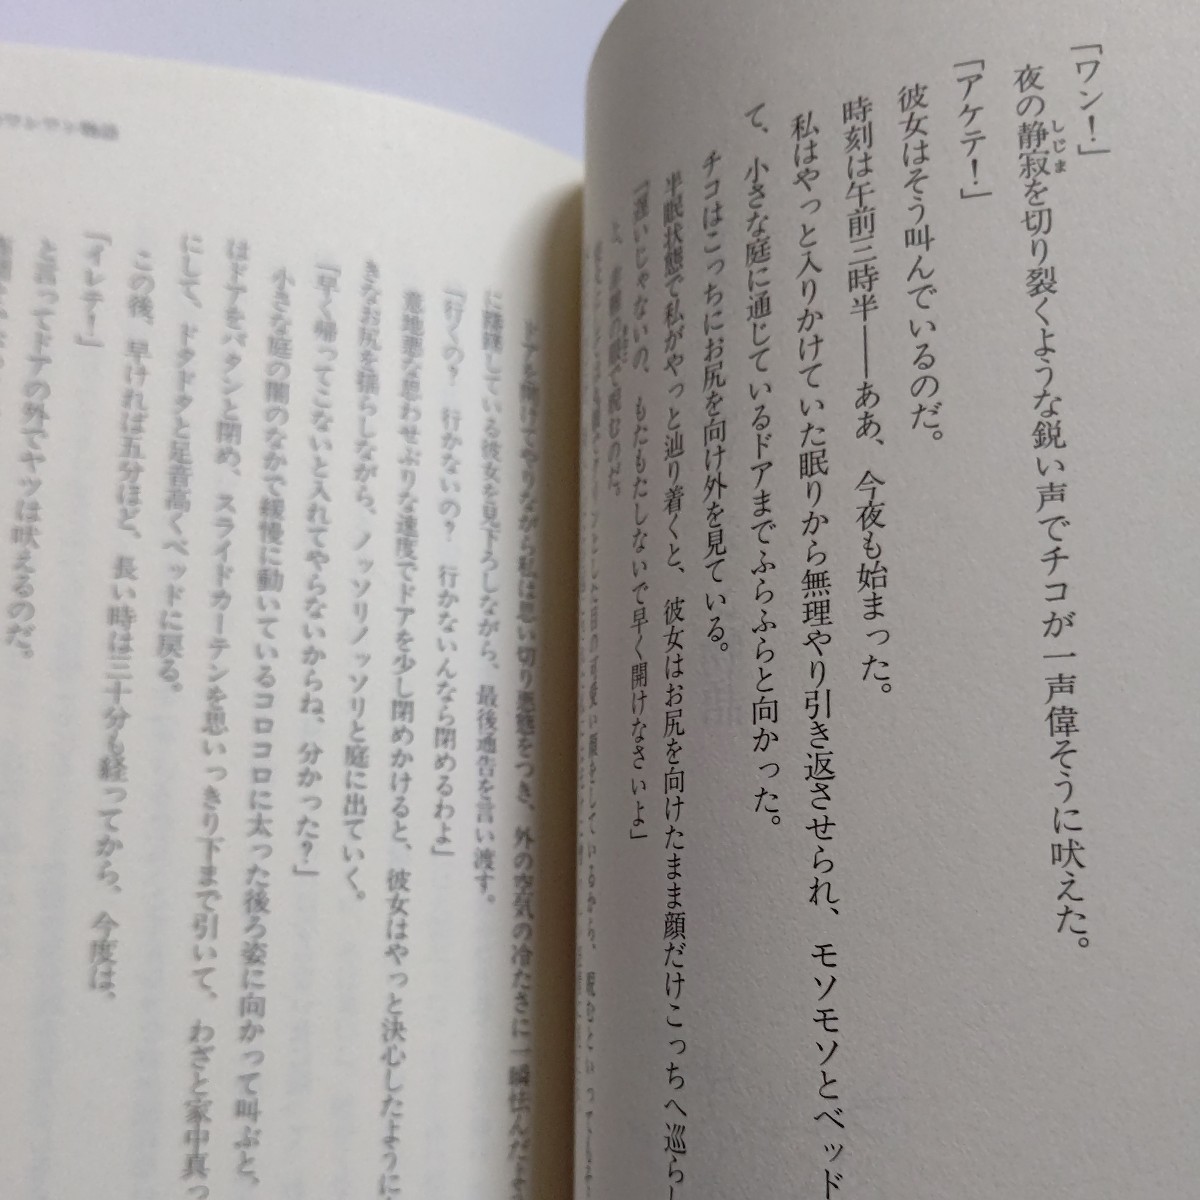 「ワン！」
夜の静寂を切り裂くような鋭い声でチコが一声偉そうに吠えた。
しじま
「アケテ！」
彼女はそう叫んでいるのだ。
時刻は午前三時半――ああ、今夜も始まった。
私はやっと入りかけていた眠りから無理やり引き返させられ、モソモソとベッド
て、小さな庭に通じているドアまでふらふらと向かった。
チコはこっちにお尻を向け外を見ている。
半眠状態で私がやっと辿り着くと、彼女はお尻を向けたまま顔だけこっちへ巡らし
「遅いじゃないの、もたもたしないで早く開けなさいよ」
の眼で睨むのだ。
した目の可愛い顔をしているから、睨むといって
ドアを開けてやりながら私は思い切り悪態をつき、外の空気の冷たさに一瞬怯んだよ
に躊躇している彼女を見下ろしながら、最後通告を言い渡す。
「行くの？　行かないの？　行かないんなら閉めるわよ」
意地悪な思わせぶりな速度でドアを少し閉めかけると、彼女はやっと決心したように
きなお尻を揺らしながら、ノッソリノッソリと庭に出ていく。
「早く帰ってこないと入れてやらないからね、分かった？」
小さな庭の闇のなかで緩慢に動いているコロコロに太った後ろ姿に向かって叫ぶと、
はドアをバタンと閉め、スライドカーテンを思いっきり下まで引いて、わざと家中真っ
にして、ドタドタと足音高くベッドに戻る。
この後、早ければ五分ほど、長い時は三十分も経ってから、今度は、
「イレテ！」
と言ってドアの外でヤツは吠えるのだ。
ワンワン物語